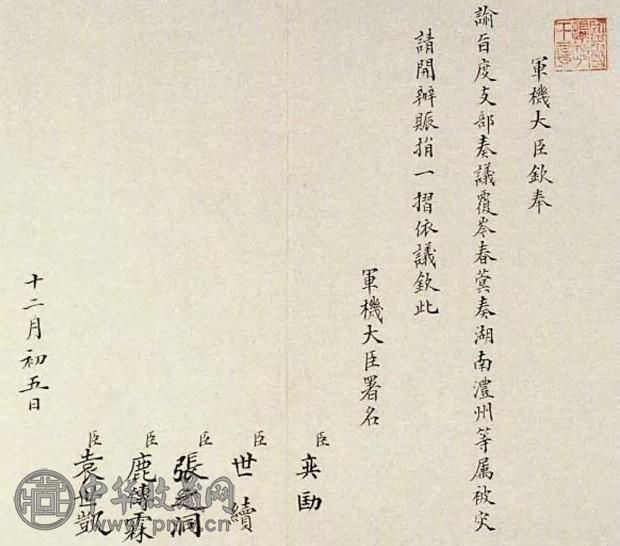 軍機大臣欽奉
諭旨度支部奏議覆岑春蓂奏湖南澧州等属被灾
請開辦賑捐一摺依議欽此
軍機大臣署名
臣奕劻
臣世續
臣張之洞
臣鹿傳霖
臣袁世凱
十二月初五日
中华收藏网
www.pmcn